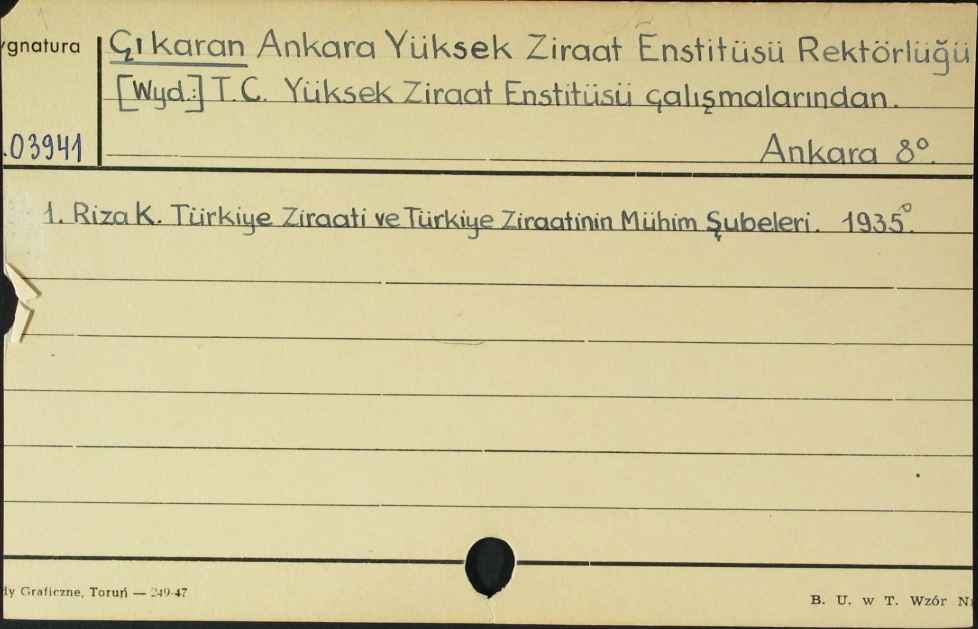 ygnatura
Çıkaran Ankara Yüksek Ziraat Enstitüsü Rektörlüğü
[Wyd.:] T.C. Yüksek Ziraat Enstitüsü çalışmalarından.
.03941
Ankara 8°.
1. Riza K. Türkiye Ziraati ve Türkiye Ziraatinin Mühim Şubeleri. 1935°.
dy Graficzne, Toruń — 249-47
B. U. w T. Wzór N